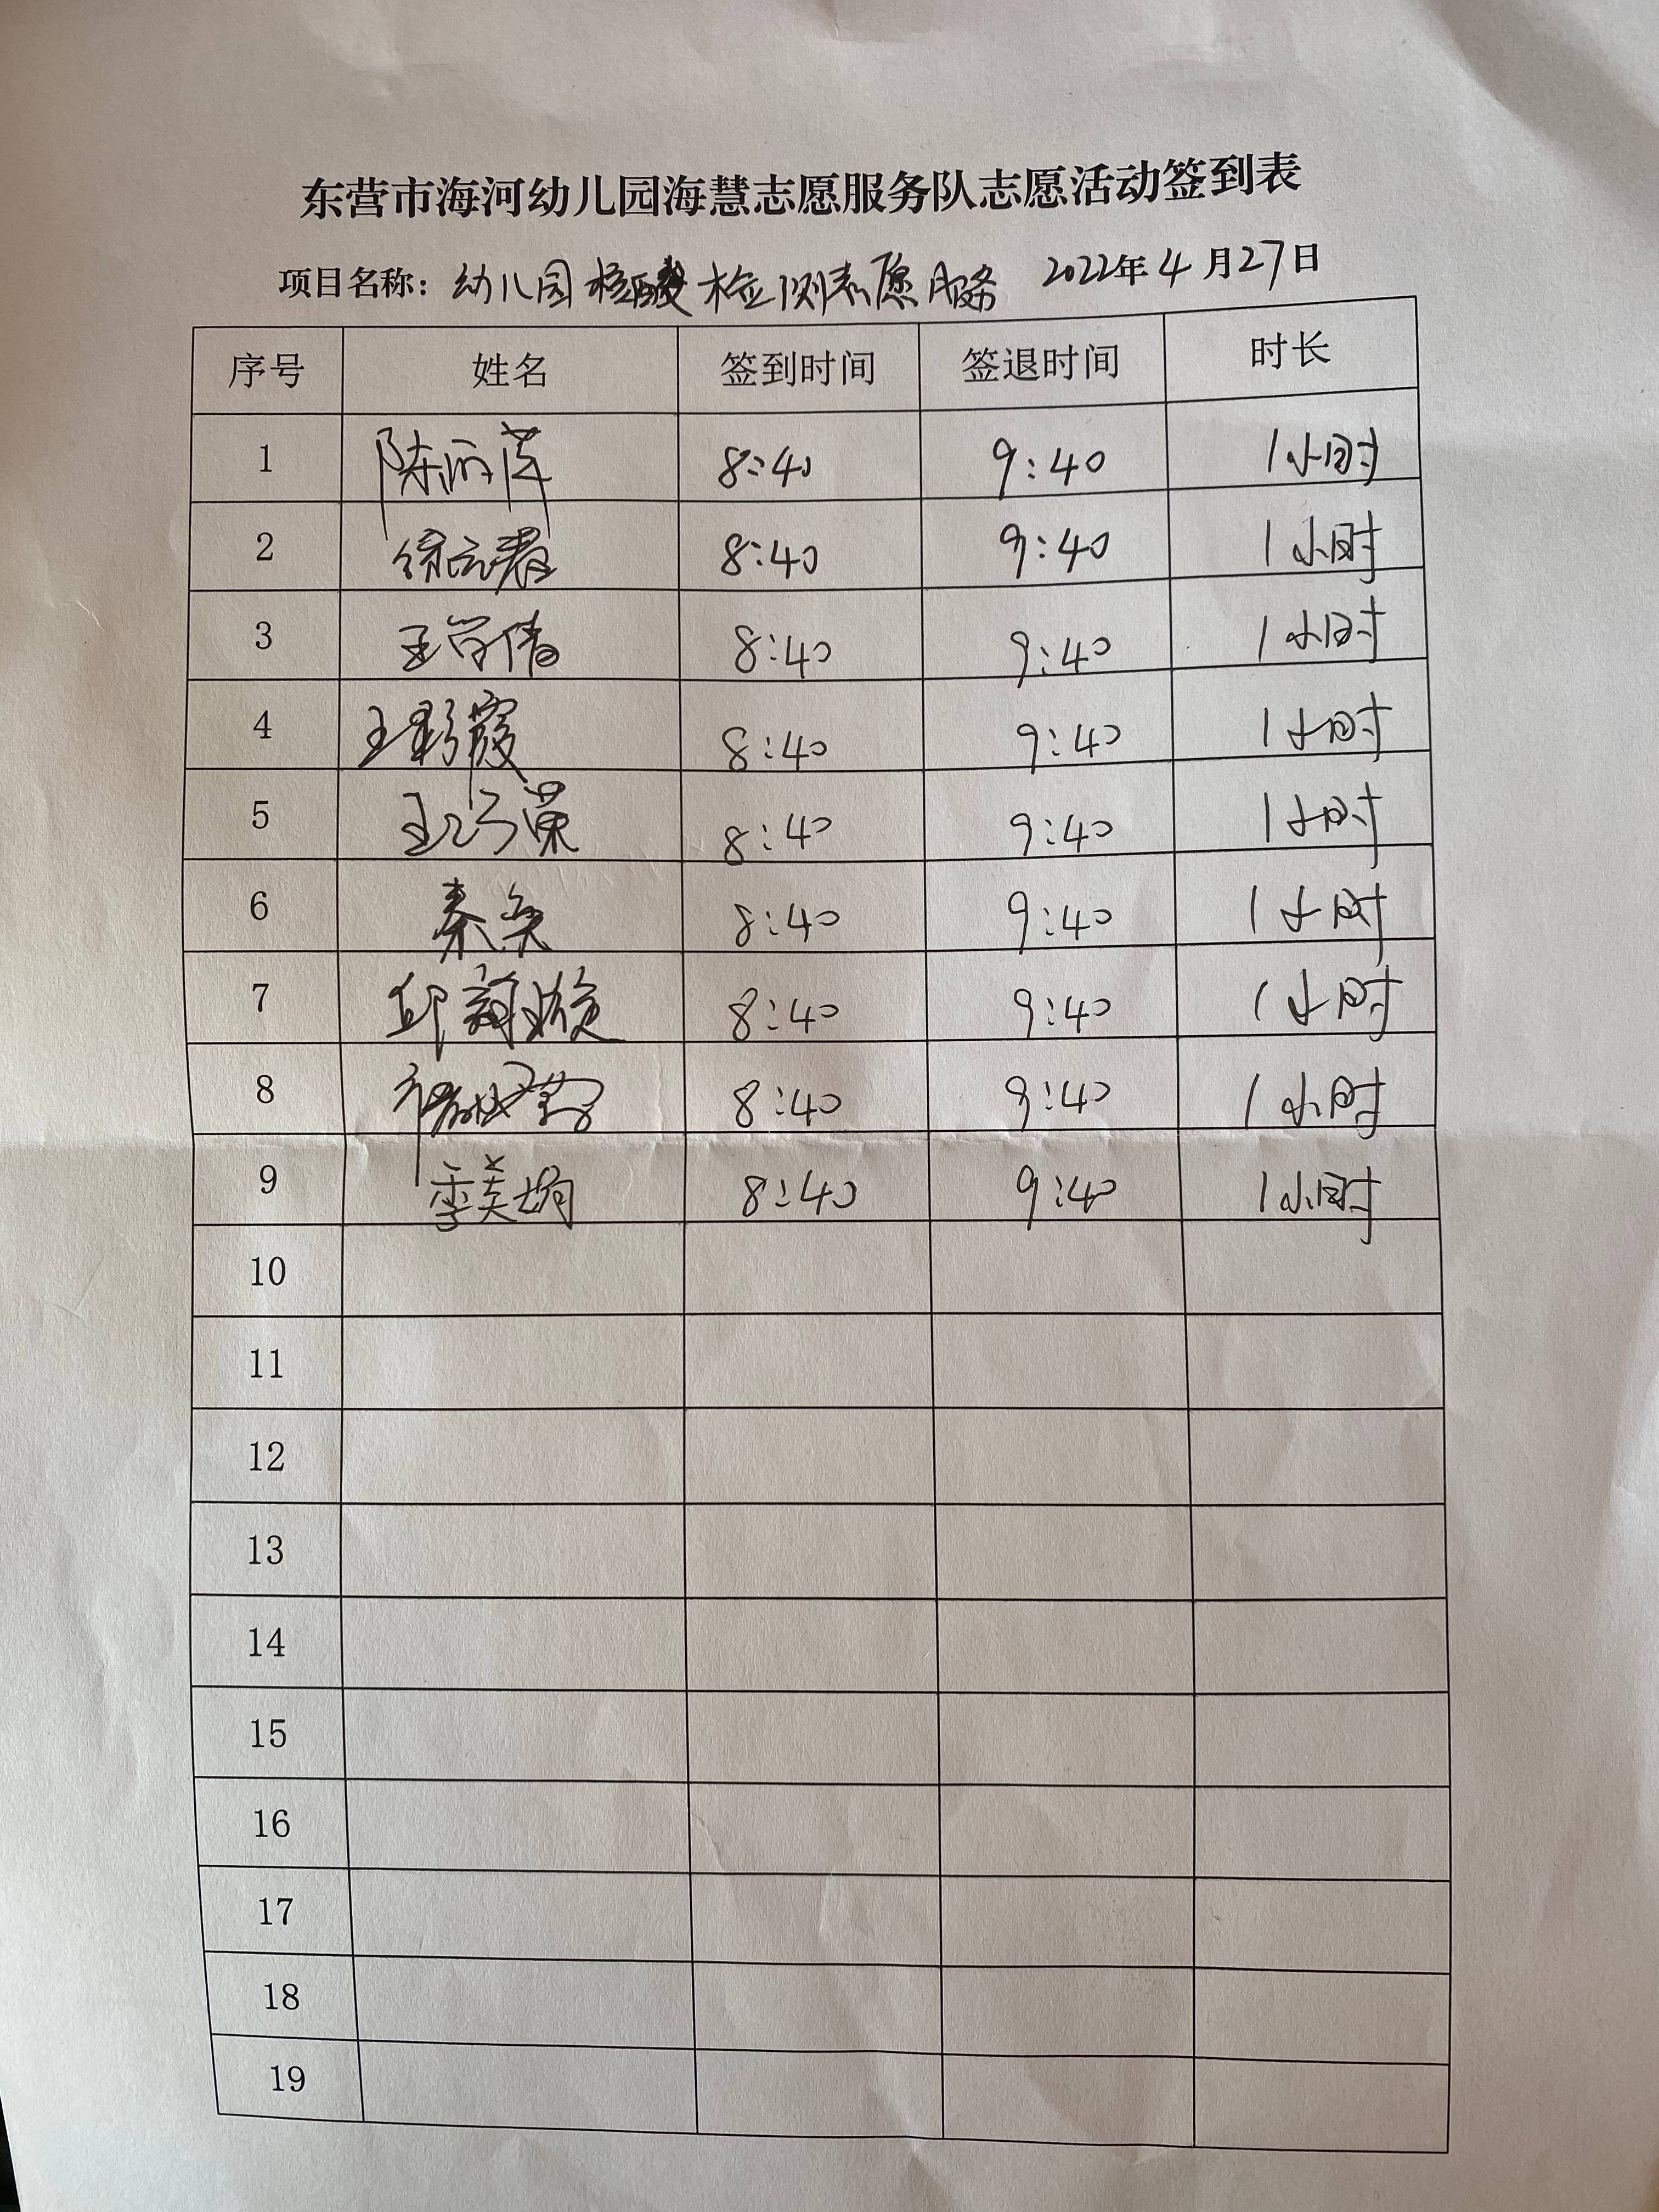 东营市海河幼儿园海慧志愿服务队志愿活动签到表
项目名称：幼儿园核酸检测志愿服务 2022年4月27日
序号 姓名 签到时间 签退时间 时长
1 陈 8:40 9:40 1小时
2 徐 8:40 9:40 1小时
3 王 倩 8:40 9:40 1小时
4 王彩霞 8:40 9:40 1小时
5 王巧 8:40 9:40 1小时
6 秦 8:40 9:40 1小时
7 邱 8:40 9:40 1小时
8 8:40 9:40 1小时
9 季美娟 8:40 9:40 1小时
10
11
12
13
14
15
16
17
18
19